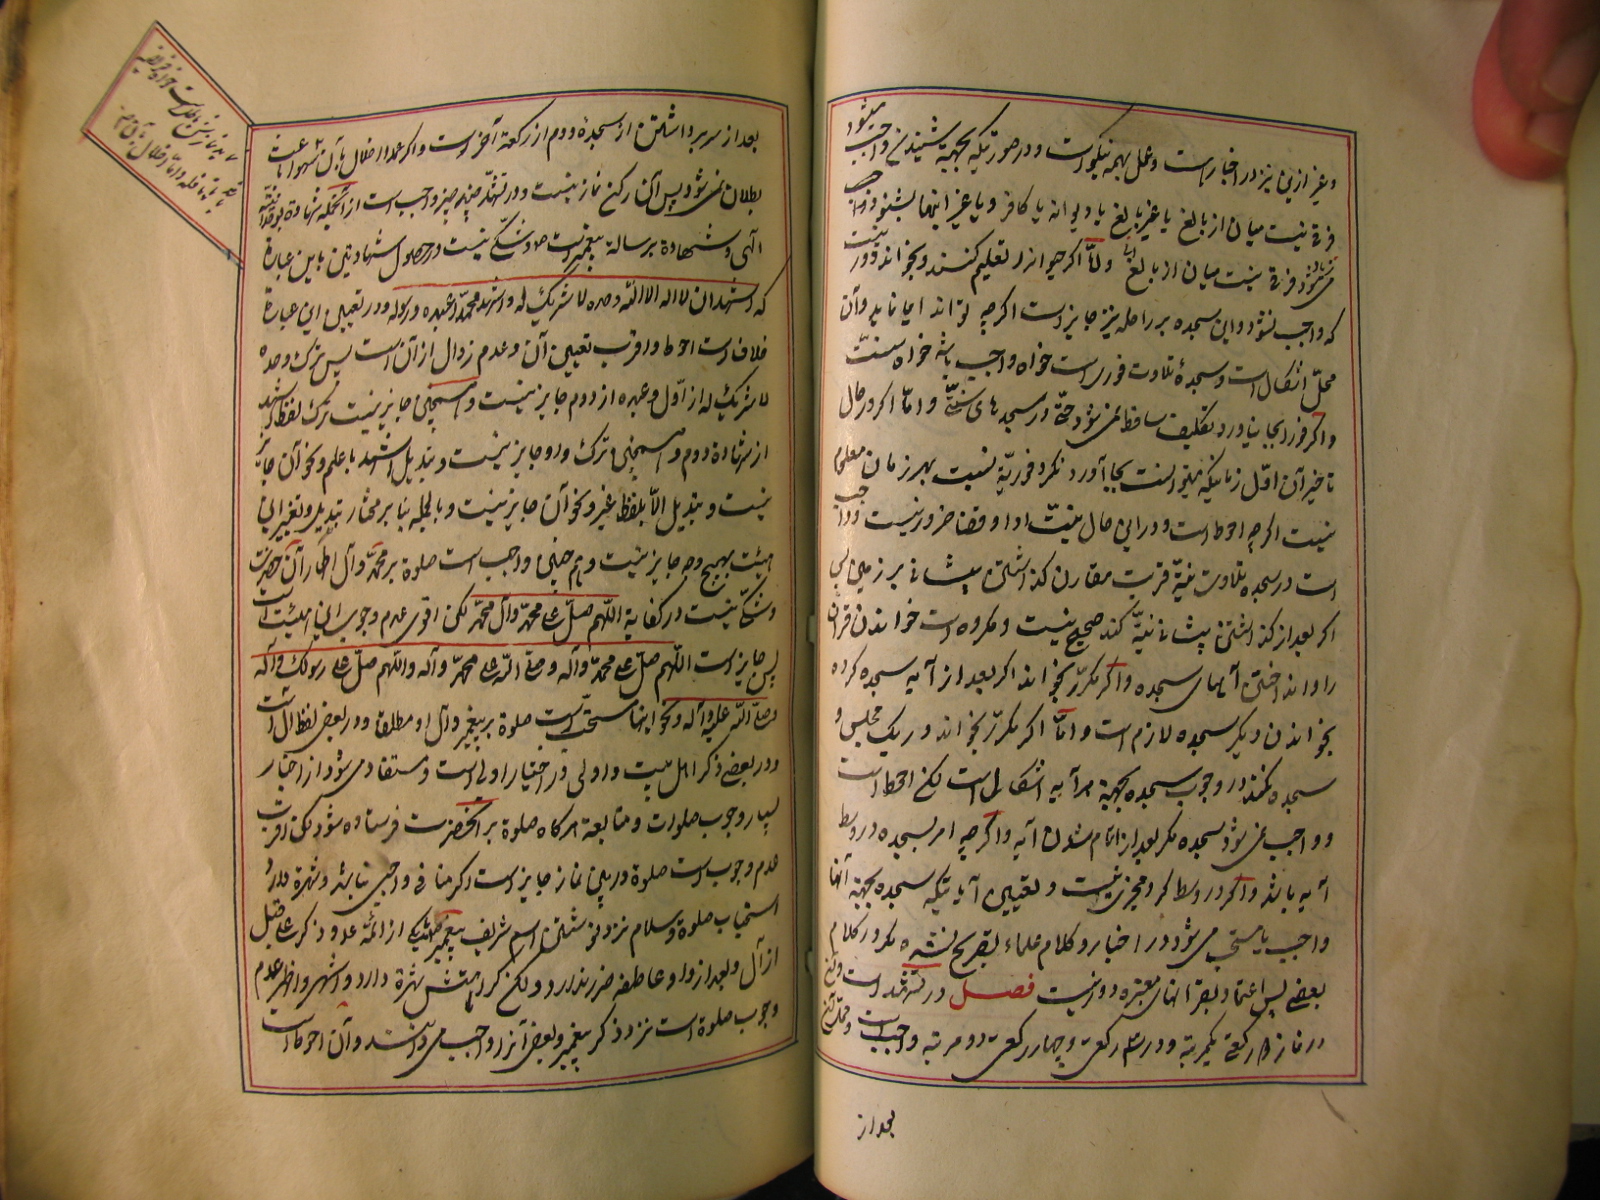 وغیر از این نیز در اخبار است وعمل بهمه نیکو است ودر صورتیکه بجهة شنیدن واجب میشود
فرقی نیست میان از بالغ یا غیر بالغ یا دیوانه یا کافر ویا غیر اینها بشنود واجب
می شود وفرقی نیست میان از بالغ واما اگر حیوانرا تعلیم کنند وبخواند دور نیست
که واجب نشود واین سجده بر راحله نیز جایز است اگرچه تواند ایما نماید وآن
محل اشکال است وسجدهٔ تلاوت فوری است خواه واجب باشد خواه سنت
واگر فورا بجا نیاورد تکلیف ساقط نمی شود حتی در سجده های سنتی واما اگر در حال
تاخیر آن اول زمانیکه میتوانست بجا آورد نکرد فوریة نسبت بهر زمان معلوم
نیست اگرچه احوط است ودر این حال نیت ادا وقضا ضرور نیست وواجب
است در سجده تلاوت نیة قربت مقارن گذاشتن پیشانی بر زمین پس
اگر بعد از گذاشتن پیشانی نیة کند صحیح نیست ومکروه است خواندن قران
را وانداختن آیهای سجده واگر مکرر بخواند اگر بعد از آیه سجده کرده
بخواندن دیگر سجده لازم است واما اگر مکرر بخواند در یک مجلس و
سجده نکند در وجوب سجده بجهة هر آیه اشکال است لکن احوط است
وواجب نمی شود سجده مگر بعد از اتمام شدن آیه واگرچه امر بسجده در وسط
آیه باشد واگر در وسط کرد مجزی نیست وتعیین آیاتیکه سجده بجهة آنها
واجب یا سنتی می شود در اخبار وکلام علماء بتصریح نشده مگر در کلام
بعضی پس اعتماد بقرانهای معتبره دور نیست فصل در تشهد است
در نماز دو رکعتی یکمرتبه ودر سه رکعتی وچهار رکعتی دو مرتبه واجب است ومحل آن
بعد از
بعد از سر برداشتن از سجدهٔ دوم از رکعة آخر است واگر عمدا اخلال بآن
بطلان نمی شود پس آن رکن نماز نیست ودر تشهد چند چیز واجب است از آنجمله شهادة بوحدانیة
الهی وشهادة برسالة پیغمبر است وشکی نیست در حصول شهادتین باین عبارة
که اشهد ان لا اله الا الله وحده لا شریک له واشهد ان محمدا عبده ورسوله ودر تعیین این عبارة
خلاف است احوط واقرب تعیین آن وعدم زوال از آن است پس ترک وحده
لا شریک له از اول وعبده از دوم جایز نیست وهمچنین جایز نیست ترک لفظ اشهد
از شهادة دوم وهمچنین ترک واو جایز نیست وتبدیل اشهد باعلم ونحو آن جایز
نیست وتبدیل الا بلفظ غیر ونحو آن جایز نیست وبالجمله بنا بر مختار تبدیل وتغییر این
هیئت بهیچ وجه جایز نیست وهم چنین واجب است صلوة بر محمد وآل اطهار آن حضرت
وشکی نیست در کفایة اللهم صل علی محمد وآل محمد لکن اقوی عدم وجوب این هیئت است
پس جایز است اللهم صل علی محمد وآله وصلی الله علی محمد وآله واللهم صل علی رسولک وآله
وصلی الله علیه وآله ونحو اینها مستحب است صلوة بر پیغمبر وآل او مطلقا ودر بعض لفظ آل است
ودر بعضی ذکر اهل بیت واولی در اختیار اولی است ومستفاد می شود از اخبار
بسیار وجوب صلوات ومتابعة هرگاه صلوة بر آنحضرت فرستاده شود لکن اقرب
عدم وجوب است صلوة در بین نماز جایز است اگر منافی واجبی نباشد وشهرة دارد
استحباب صلوة وسلام نزد نوشتن اسم شریف پیغمبر وهر یک از ائمه وذکر علی قبل
از آل وبعد از واو عاطفه ضرر ندارد ولکن کراهتش شهرة دارد واشهر واظهر عدم
وجوب صلوة است نزد ذکر پیغمبر وبعضی آنرا واجب می دانند وآن احوط است